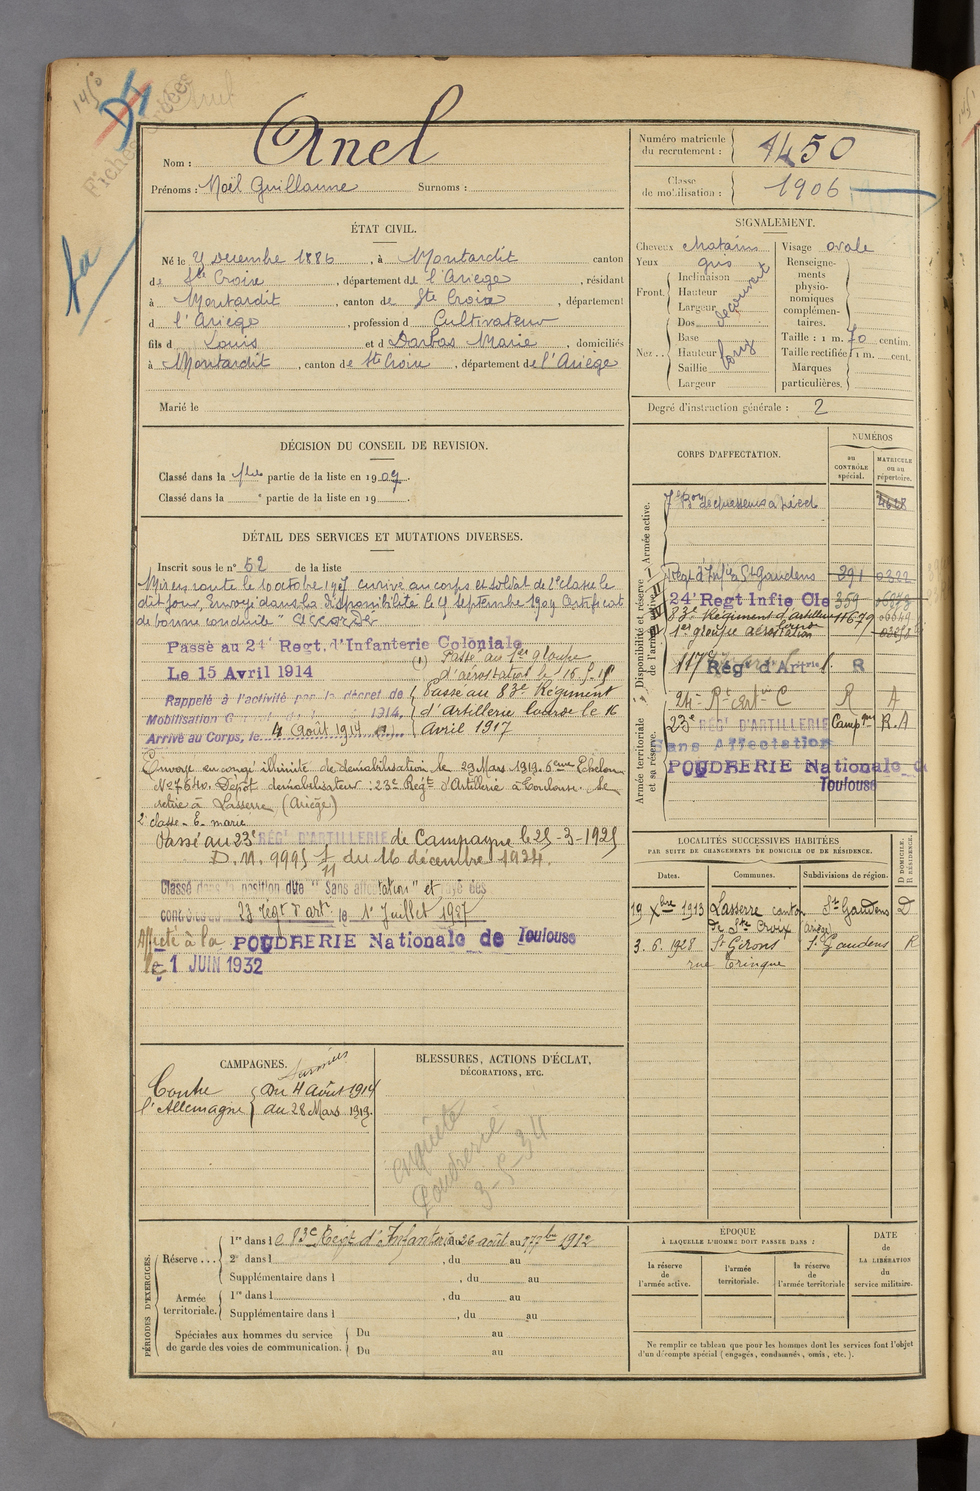 1450
DI
Fiche
fa
Nom : Anel
Prénoms : Noël Guillaume Surnoms :
Numéro matricule du recrutement : 1450
Classe de mobilisation : 1906
ÉTAT CIVIL.
Né le 9 décembre 1886, à Montardit canton
de Ste Croix, département de l'Ariège, résidant
à Montardit, canton de Ste Croix, département
d l'Ariège, profession d Cultivateur
fils d Louis et d Darbas Marie, domiciliés
à Montardit, canton de Ste Croix, département de l'Ariège
Marié le
SIGNALEMENT.
Cheveux chatains
Yeux gris
Front. Inclinaison
Hauteur
Largeur
découvert
Nez .. Dos
Base
Hauteur
Saillie
Largeur
long
Visage ovale
Renseignements physionomiques complémentaires.
Taille : 1 m. 70 centim.
Taille rectifiée 1 m. cent.
Marques particulières.
Degré d'instruction générale : 2
DÉCISION DU CONSEIL DE REVISION.
Classé dans la 1re partie de la liste en 1907.
Classé dans la e partie de la liste en 19
DÉTAIL DES SERVICES ET MUTATIONS DIVERSES.
Inscrit sous le n° 52 de la liste
Mis en route le 10 octobre 1907 arrivé au corps et soldat de 2e classe le
dit jour, Envoyé dans la disponibilité le 9 septembre 1909 Certificat
de bonne conduite " ACCORDÉ
Passé au 24e Regt. d'Infanterie Coloniale
Le 15 Avril 1914
(1) Passé au 1er groupe
d'aérostation le 16
Rappelé à l'activité par le décret de
Mobilisation 1914.
Arrivé au Corps, le 4 Août 1914 (1)
Passé au 83e Régiment
d'artillerie lourde le 16
Avril 1917
Envoyé en congé illimité de démobilisation le 29 Mars 1919. Echelon
N° 7640. Dépôt démobilisateur : 23e Régt d'Artillerie à Toulouse. Se
retire à Lasserre (Ariège)
2e classe - E. marié
Passé au 23e RÉGt D'ARTILLERIE de Campagne le 25-3-1925
D.M. 9995 1/11 du 16 décembre 1924.
Classé dans la position dite "Sans affectation" et rayé des
contrôles du 23 régt d'artie le 1er Juillet 1927
Affecté à la POUDRERIE Nationale de Toulouse
le - 1 JUIN 1932
CORPS D'AFFECTATION.
NUMÉROS
au CONTRÔLE spécial.
MATRICULE ou au répertoire.
Armée active.
7e Bon de chasseurs à pied 4628
Disponibilité et réserve de l'armée active.
Régt d'Infie à St Gaudens 391 0322
24e Regt Infie Ole 359
83e Régiment d'artillerie lourde 11679
1er groupe aérostation
117e Régt d'Artie l. R
24e Rt Artie C R A
Armée territoriale et sa réserve.
23e RÉGt D'ARTILLERIE Campgne R.A
Sans Affectation
POUDRERIE Nationale de
Toulouse
LOCALITÉS SUCCESSIVES HABITÉES
PAR SUITE DE CHANGEMENTS DE DOMICILE OU DE RÉSIDENCE.
Dates. Communes. Subdivisions de région. D DOMICILE. R RÉSIDENCE.
19 Xbre 1913 Lasserre canton St Gaudens D
de Ste Croix (Ariège)
3. 6. 1928 St Girons St Gaudens R
rue Trinque
CAMPAGNES.
Contre l'Allemagne
armées
Du 4 Août 1914
au 28 Mars 1919.
BLESSURES, ACTIONS D'ÉCLAT,
DÉCORATIONS, ETC.
enquête
Poudrerie
3-5-34
PÉRIODES D'EXERCICES.
Réserve ... 1re dans le 83e Régt d'Infanterie du 26 août au 17 7bre 1912
2e dans l , du au
Supplémentaire dans l , du au
Armée territoriale. 1re dans l , du au
Supplémentaire dans l , du au
Spéciales aux hommes du service de garde des voies de communication. Du au
Du au
ÉPOQUE
À LAQUELLE L'HOMME DOIT PASSER DANS :
la réserve de l'armée active.
l'armée territoriale.
la réserve de l'armée territoriale
DATE de LA LIBÉRATION du service militaire.
Ne remplir ce tableau que pour les hommes dont les services font l'objet
d'un décompte spécial (engagés, condamnés, omis, etc.).